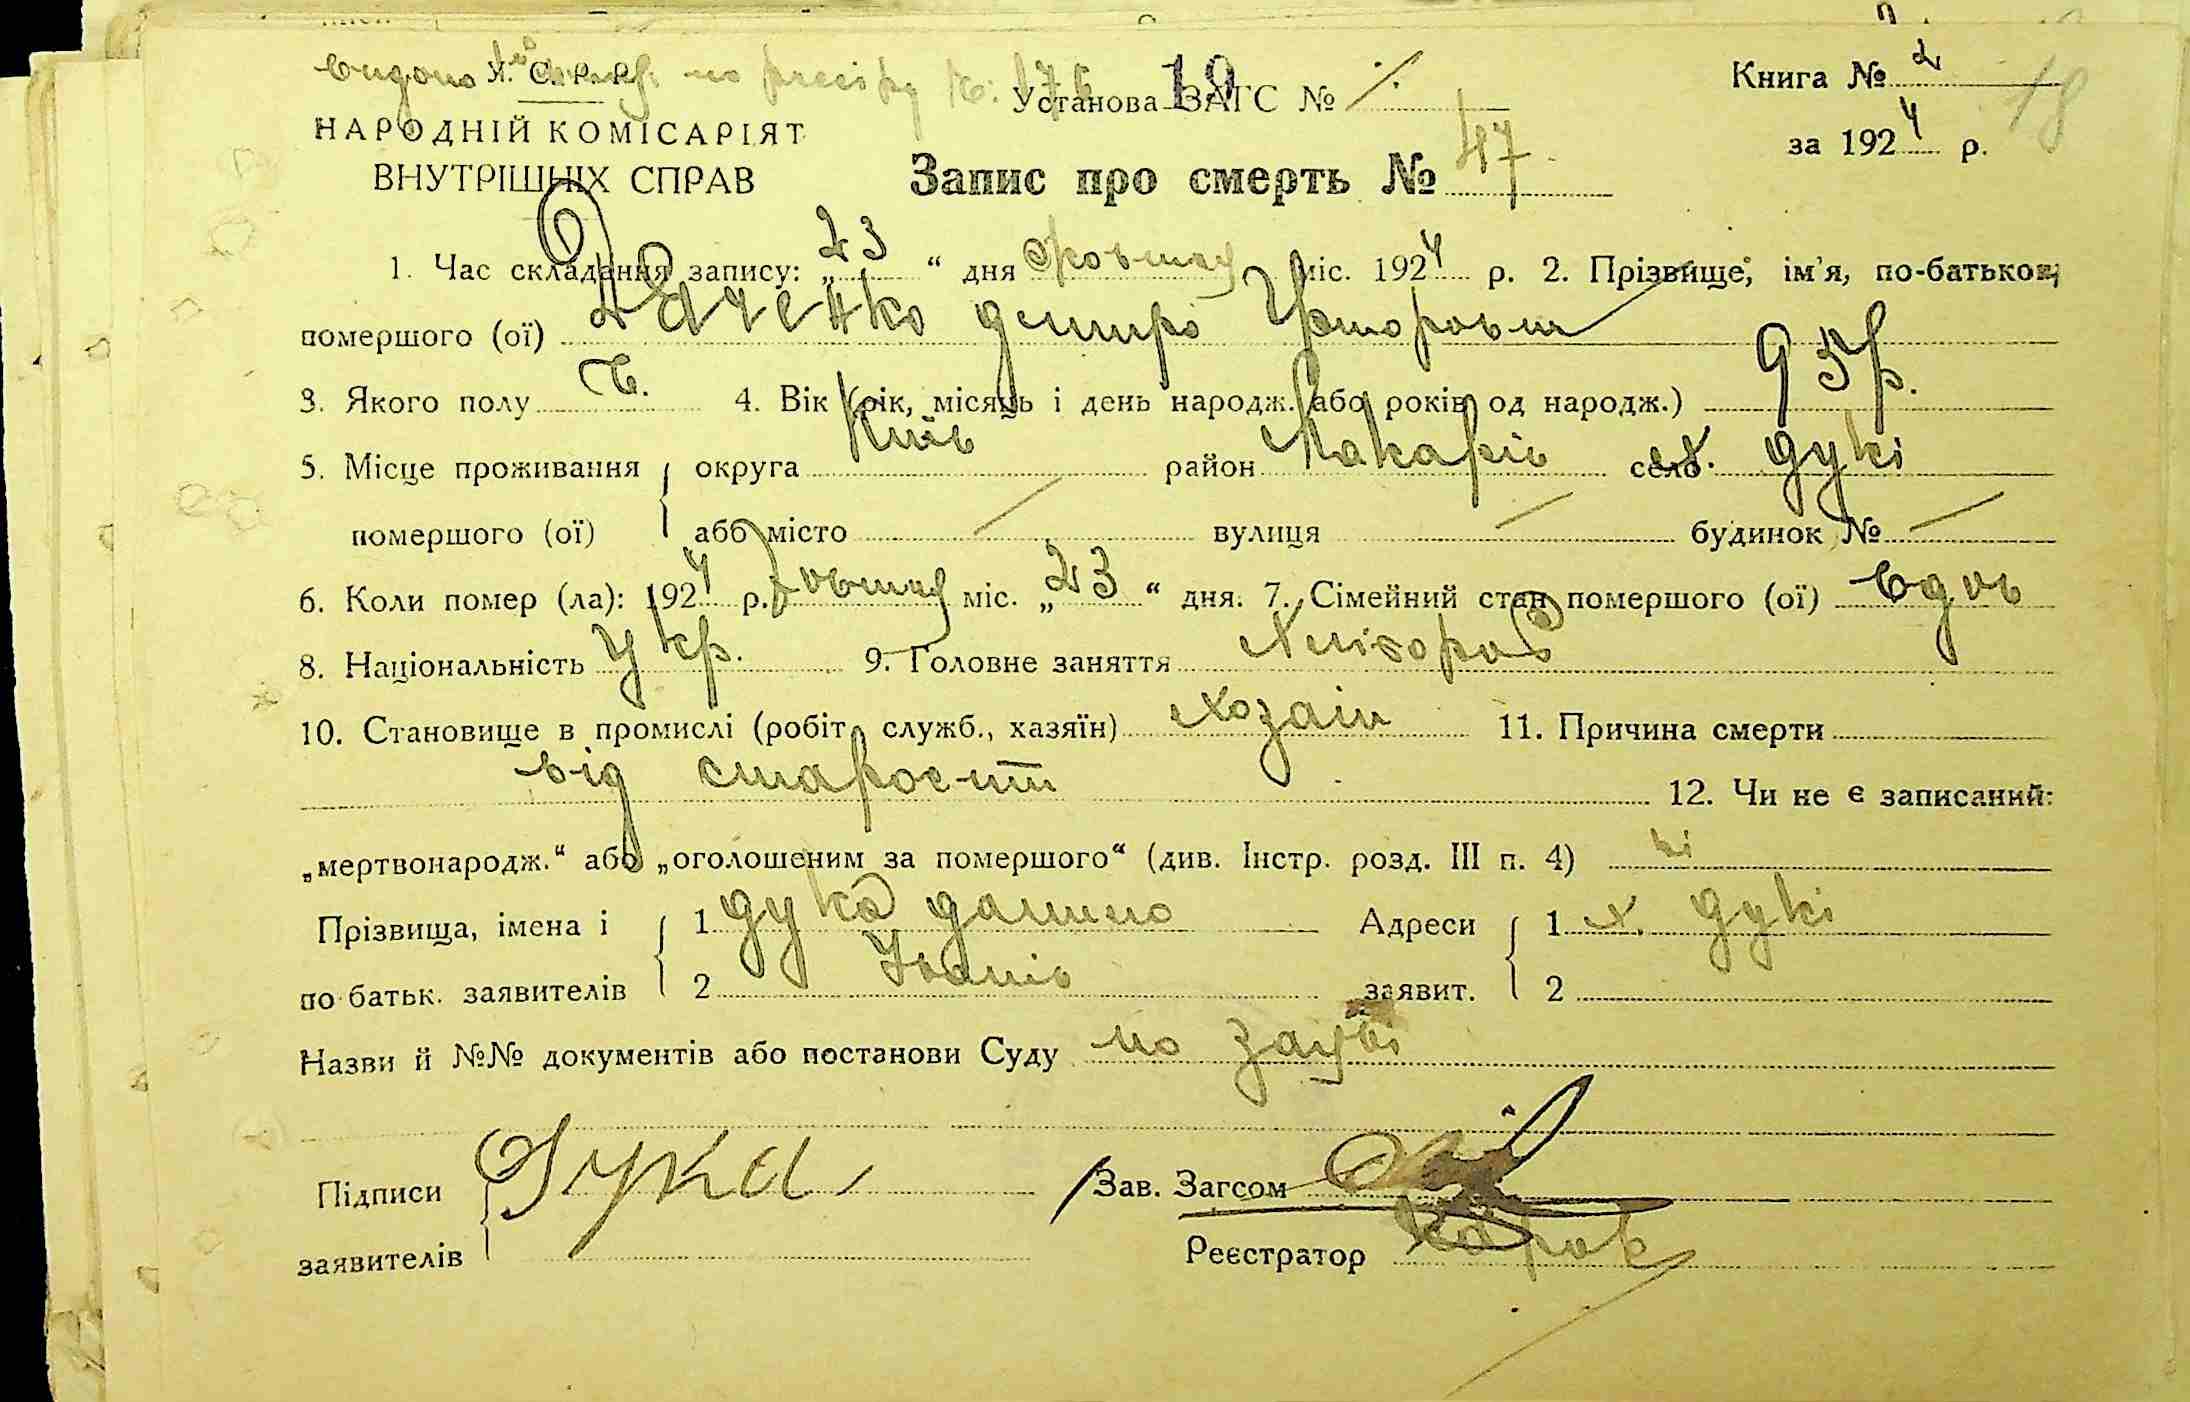 У. С. Р. Р.
видано по реєстру №. 176
19
Установа ЗАГС №
Книга № 2
18
НАРОДНІЙ КОМІСАРІЯТ
за 1924 р.
ВНУТРІШНІХ СПРАВ
Запис про смерть № 47
1. Час складання запису: „23“ дня жовтня міс. 1924 р. 2. Прізвище, ім’я, по-батькові
помершого (ої) Дяченко дмитро
3. Якого полу ч. 4. Вік (рік, місяць і день народж. або років од народж.) 93 р.
5. Місце проживання округа Київ район Макарів село х. дукі
помершого (ої) або місто вулиця будинок №
6. Коли помер (ла): 1924 р. жовтня міс. „23“ дня. 7. Сімейний стан помершого (ої) вдов
8. Національність Укр. 9. Головне заняття хлібороб
10. Становище в промислі (робіт., служб., хазяїн) хозаін 11. Причина смерти
від старости 12. Чи не є записаний:
„мертвонародж.“ або „оголошеним за помершого“ (див. Інстр. розд. III п. 4) ні
Прізвища, імена і 1 дука данило Адреси 1 х. дукі
по батьк. заявителів 2 Іванів заявит. 2
Назви й №№ документів або постанови Суду по заяві
Підписи Дука Зав. Загсом
заявителів Реєстратор